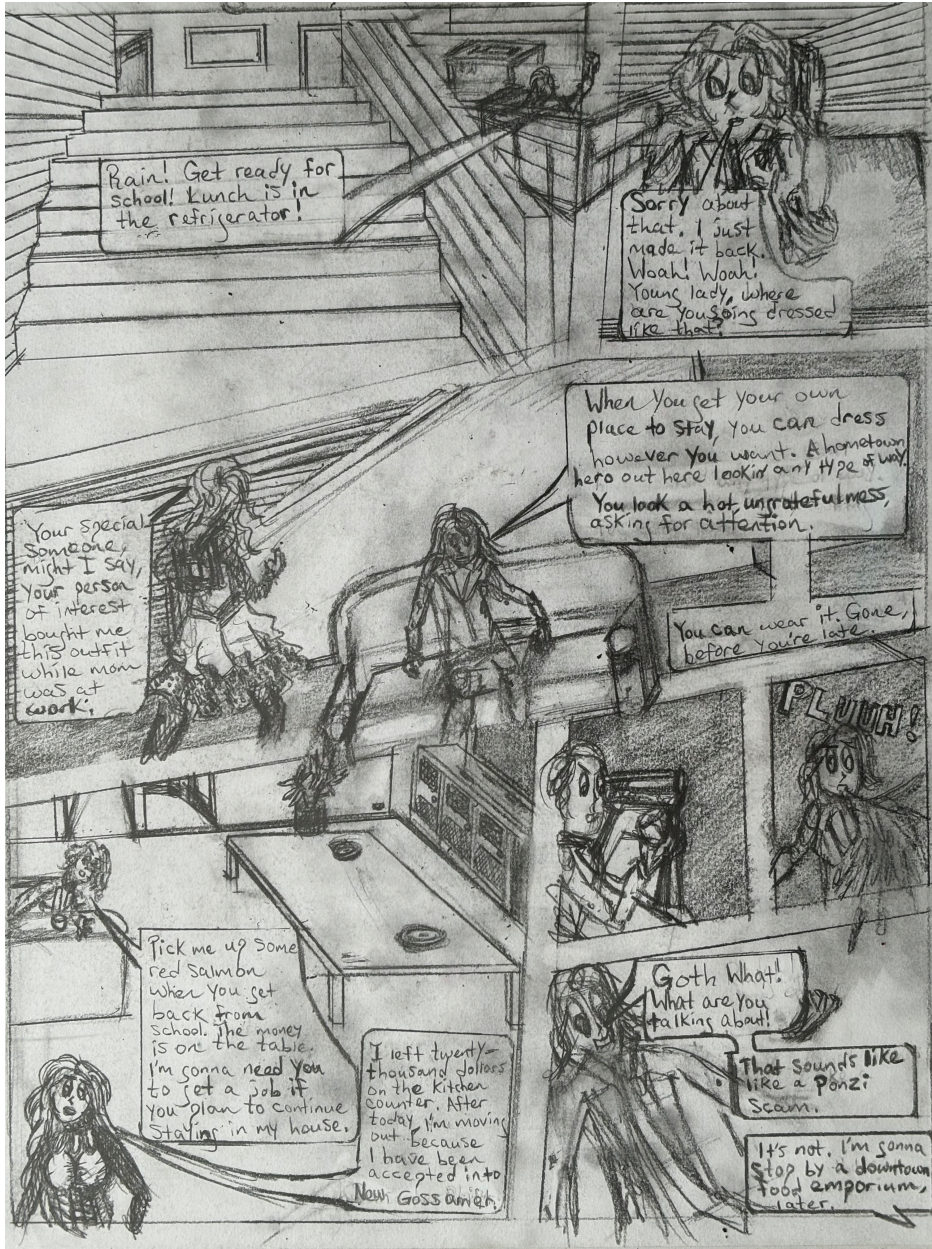 Rain! Get ready for
school! Lunch is in
the refrigerator!
Sorry about
that. I just
made it back.
Woah! Woah!
Young lady, where
are you going dressed
like that?
When you get your own
place to stay, you can dress
however you want. A hometown
hero out here lookin any type of way.
You look a hot, ungrateful mess,
asking for attention.
Your special
someone,
might I say,
your person
of interest
bought me
this outfit
while mom
was at
work.
You can wear it. Gone,
before you're late.
PLUUH!
Pick me up some
red salmon
when you get
back from
school. The money
is on the table.
I'm gonna need you
to get a job if
you plan to continue
staying in my house.
I left twenty-
thousand dollars
on the kitchen
counter. After
today, I'm moving
out because
I have been
accepted into
Gossamer.
Goth What!
What are you
talking about!
That sounds like
like a Ponzi
Scam.
It's not. I'm gonna
stop by a downtown
food emporium,
later.